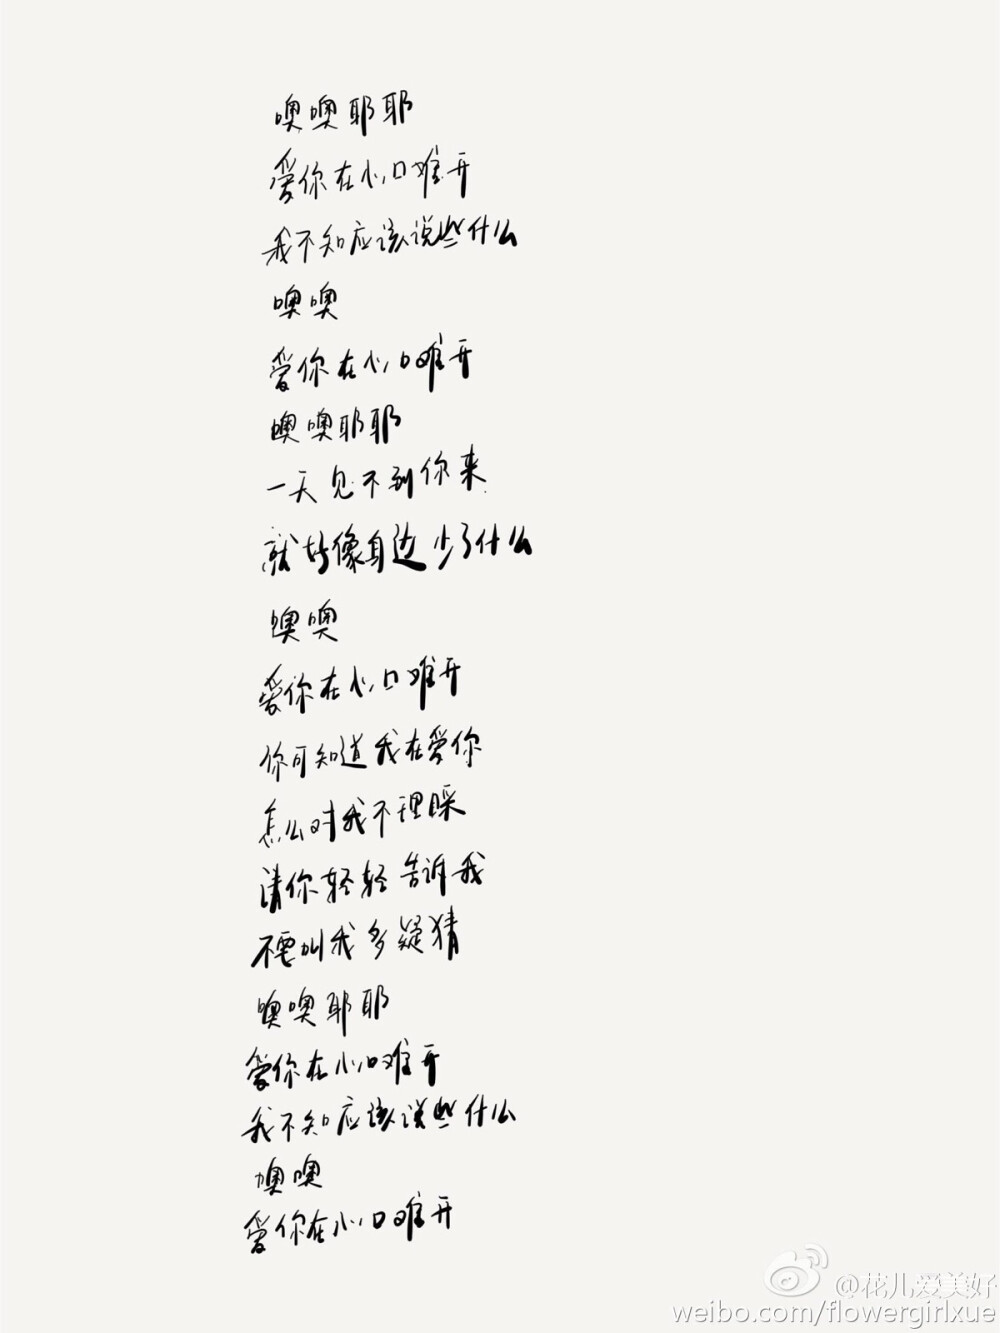 噢噢耶耶
爱你在心口难开
我不知应该说些什么
噢噢
爱你在心口难开
噢噢耶耶
一天见不到你来
就好像身边少了什么
噢噢
爱你在心口难开
你可知道我在爱你
怎么对我不理睬
请你轻轻告诉我
不要叫我多疑猜
噢噢耶耶
爱你在心口难开
我不知应该说些什么
噢噢
爱你在心口难开
@花儿爱美好
weibo.com/flowergirlxue